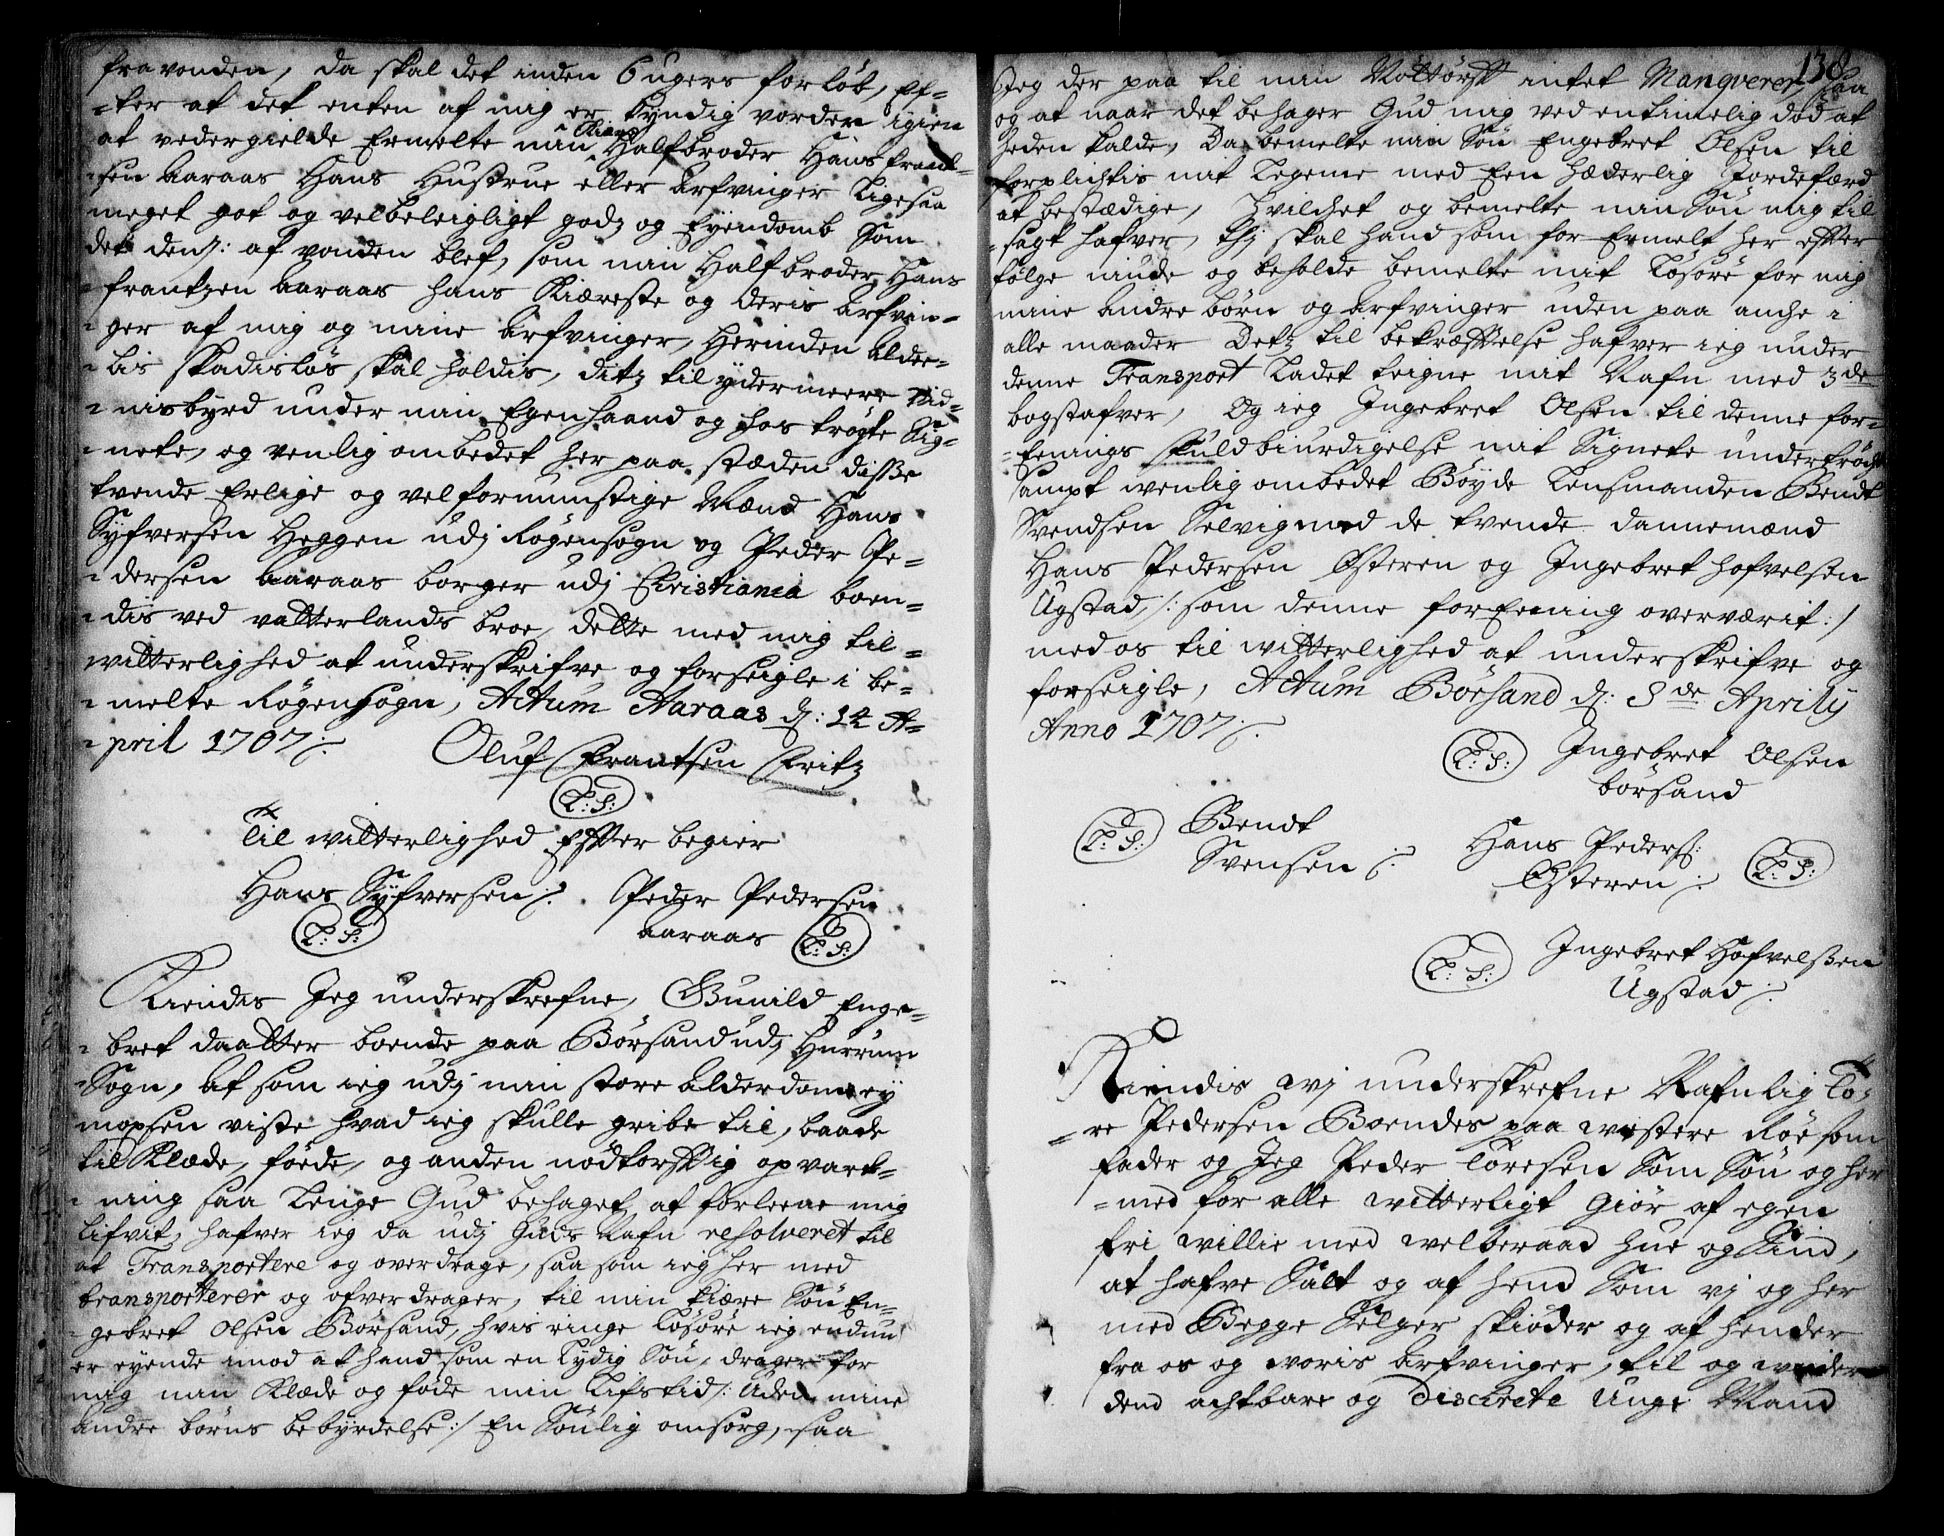 fravonden, da skal det inden 6 ugers forløb, ef-
-ter at det enten af mig er kyndig vorden igien
at vedergielde Ermelte min Kiære Halfbroder Hans frant-
-sen Aaraas Hans Hustrue eller Arfvinger Ligesaa
meget got og velbeleigligt godz og Eyendomb Som
det dend: af vonden blef, som min Halfbroder Hans
frantzen Aaraas hans Kiæreste og deris Arfvin-
-ger af mig og mine Arfvinger, Herinden Alde-
-lis skadisløs skal holdis, ditz til ydermeere Vid-
-nisbyrd under min Egen haand og hos trøgte Sig-
-nete, og venlig ombedet her paa stæden disse
tvende Erlige og velfornumstige Mænd Hans
Syfversen Heggen udj Røgensogn og Peder Pe-
-dersen Aaraas borger udj Christiania boen-
-dis ved vatterlands broe, dette med mig til
witterlighed at underskrifve og forseigle i be-
-melte Røgensogn, Actum Aaraas d: 14 A-
-pril 1707 ∕.
Oluf Frantsen Fritz
L: S:
Til witterlighed Efter begier
Hans Syfversen ∕. Peder Pedersen
L: S: Aaraas L: S:
Kiendes Jeg underskrefne, Gunild Enge-
-bret daatter boende paa Børsand udj Hurrum
Sogn, At som ieg udj min store Alderdom ey
mopsen viste hvad ieg skulle gribe til, baade
til Klæde, føede, og anden nødtorftig opvart-
-ning saa Lenge Gud behaget at forleene mig
Lifvit, hafver ieg da udj Guds Nafn resolveret til
at Transportere og overdrage, saa som ieg her med
transporterer og ofverdrager, til min kiære Søn En-
-gebret Olsen Børsand, hvis ringe Løsøre ieg endnu
er eyende imod at hand som en Lydig Søn, drager for
mig min Klæde og føde min Lifstid /: Uden mine
Andre børns bebyrdelse :/ En Sønlig omsorg, saa
138
Jeg der paa til min Nøttørft intet Manqverer, saa
og at naar det behager Gud mig ved en timelig død at
heden kalde, Da bemelte min Søn Engebret Olsen til
forplichtis mit Legeme med Een hæderlig Jordefærd
at bestædige, Hvilchet og bemelte min Søn mig til
-sagt hafver, thj skal hand som for Ermelt her efter
følge niude og beholde bemelte mit Løsøre for mig
mine Andre børn og Arfvinger uden paa anche i
alle maader Detz til bekræftelse hafver ieg under
denne Transport Ladet teigne mit Nafn med 3de
bogstafver, Og ieg Ingebret Olsen til denne for-
-Eenings fuldbiurdigelse mit Signete undertrøcht
sampt wenlig ombedet Bøyde Lensmanden Bendt
Svendsen Selvig med de tvende dannemænd
Hans Pedersen Østeren og Ingebret Hofvelsen
Ugstad, /: som denne forEening overværit :/
med os til witterlighed at underskrifve og
forseigle, Actum Børsand d: 8de Aprily
Anno 1707 ∕.
L: S: Ingebret Olsen
børsand
L: S: Bendt
Svensen ∕.
Hans Peders:
Østeren ∕. L: S:
L: S: Ingebret Hofvelsen
Ugstad ∕.
Kiendis wj underskrefne Nafnlig To-
-re Pedersen Boendes paa westere Røe som
fader og Jeg Peder Toresen Som Søn og her
-med for alle witterligt Giør af egen
fri willie med welberaad hue og Sind,
at hafve Sålt og af hend Som vj og her
med Begge Selger skiøder og af hender
fra os og woris Arfvinger, til og under
dend achtbare og Discrete Unge Mand